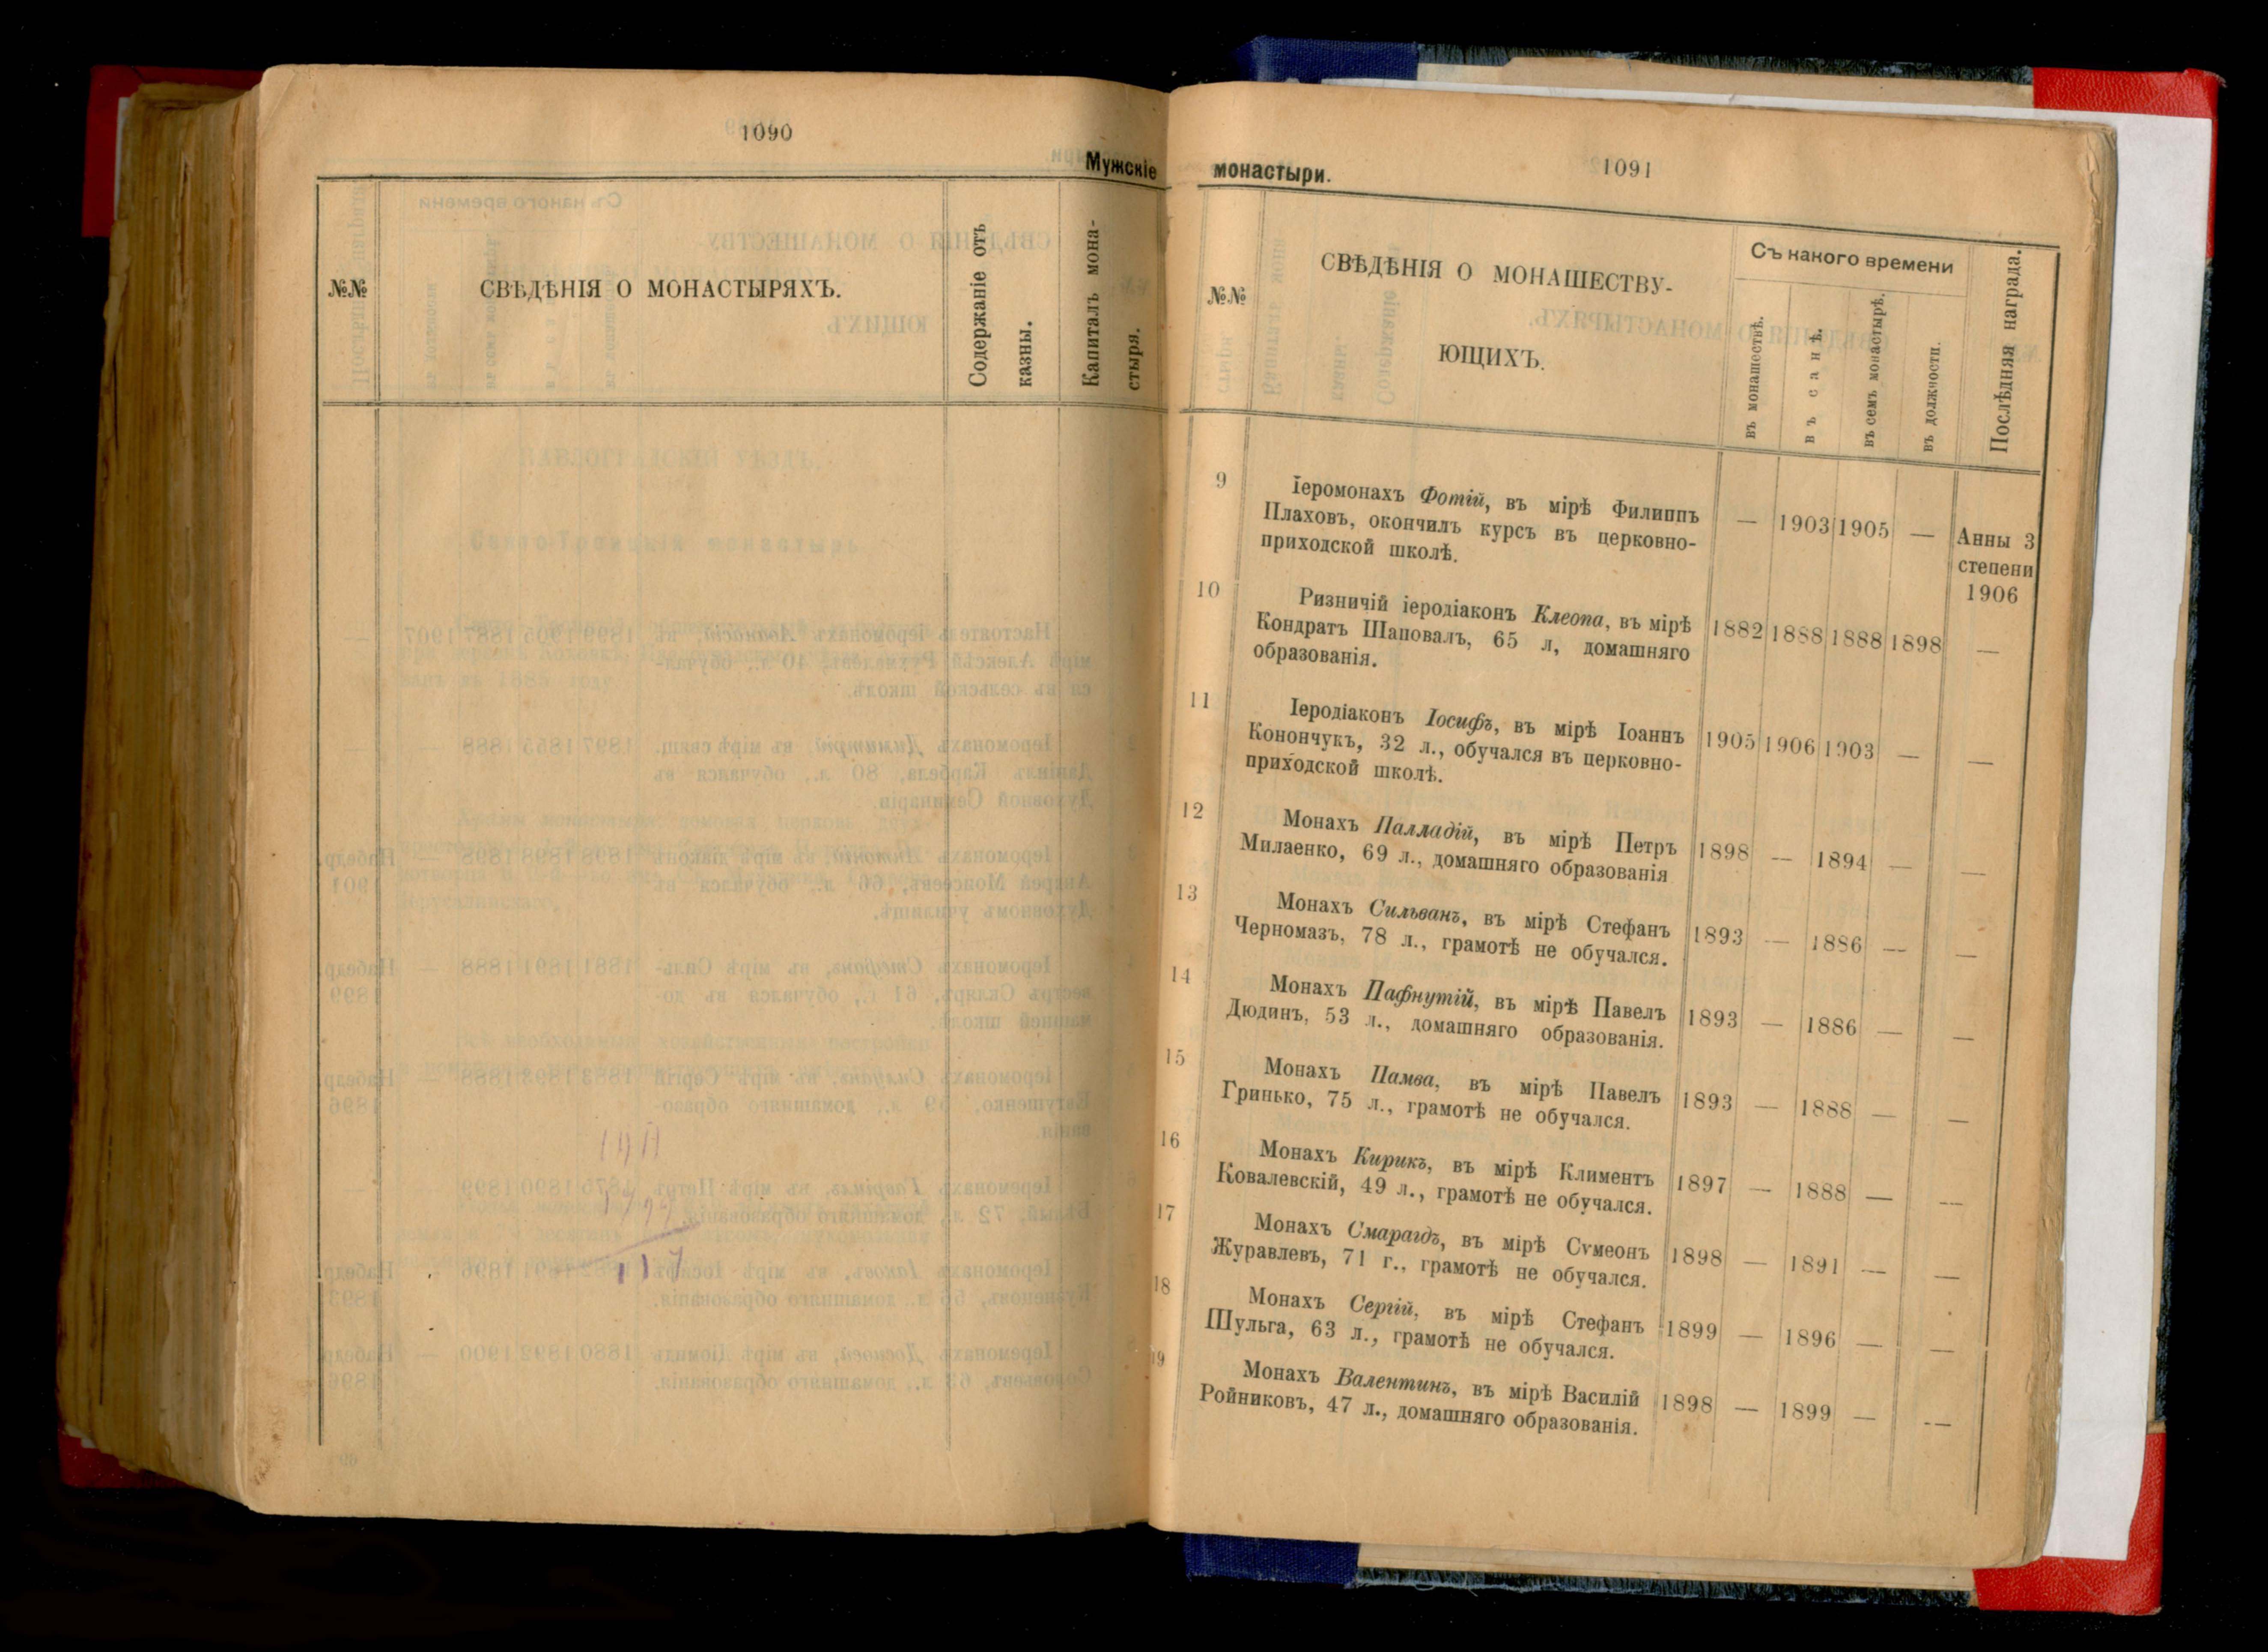 1090
Мужскіе
№№
СВѢДѢНІЯ О МОНАСТЫРЯХЪ.
Содержаніе отъ
казны.
Капиталъ мона-
стыря.
монастыри.
1091
№№
СВѢДѢНІЯ О МОНАШЕСТВУ-
ЮЩИХЪ.
Съ какого времени
въ монашествѣ.
въ санѣ.
въ семъ монастырѣ.
въ должности.
Послѣдняя награда.
9
Іеромонахъ Фотій, въ мірѣ Филиппъ
Плаховъ, окончилъ курсъ въ церковно-
приходской школѣ.
— 1903 1905 —
Анны 3
степени
1906
10
Ризничій іеродіаконъ Клеопа, въ мірѣ
Кондратъ Шаповалъ, 65 л, домашняго
образованія.
1882 1888 1888 1898 —
11
Іеродіаконъ Іосифъ, въ мірѣ Іоаннъ
Конончукъ, 32 л., обучался въ церковно-
приходской школѣ.
1905 1906 1903 — —
12
Монахъ Палладій, въ мірѣ Петръ
Милаенко, 69 л., домашняго образованія
1898 — 1894 — —
13
Монахъ Сильванъ, въ мірѣ Стефанъ
Черномазъ, 78 л., грамотѣ не обучался.
1893 — 1886 — —
14
Монахъ Пафнутій, въ мірѣ Павелъ
Дюдинъ, 53 л., домашняго образованія.
1893 — 1886 — —
15
Монахъ Памва, въ мірѣ Павелъ
Гринько, 75 л., грамотѣ не обучался.
1893 — 1888 — —
16
Монахъ Кирикъ, въ мірѣ Климентъ
Ковалевскій, 49 л., грамотѣ не обучался.
1897 — 1888 — —
17
Монахъ Смарагдъ, въ мірѣ Сѵмеонъ
Журавлевъ, 71 г., грамотѣ не обучался.
1898 — 1891 — —
18
Монахъ Сергій, въ мірѣ Стефанъ
Шульга, 63 л., грамотѣ не обучался.
1899 — 1896 — —
19
Монахъ Валентинъ, въ мірѣ Василій
Ройниковъ, 47 л., домашняго образованія.
1898 — 1899 — —